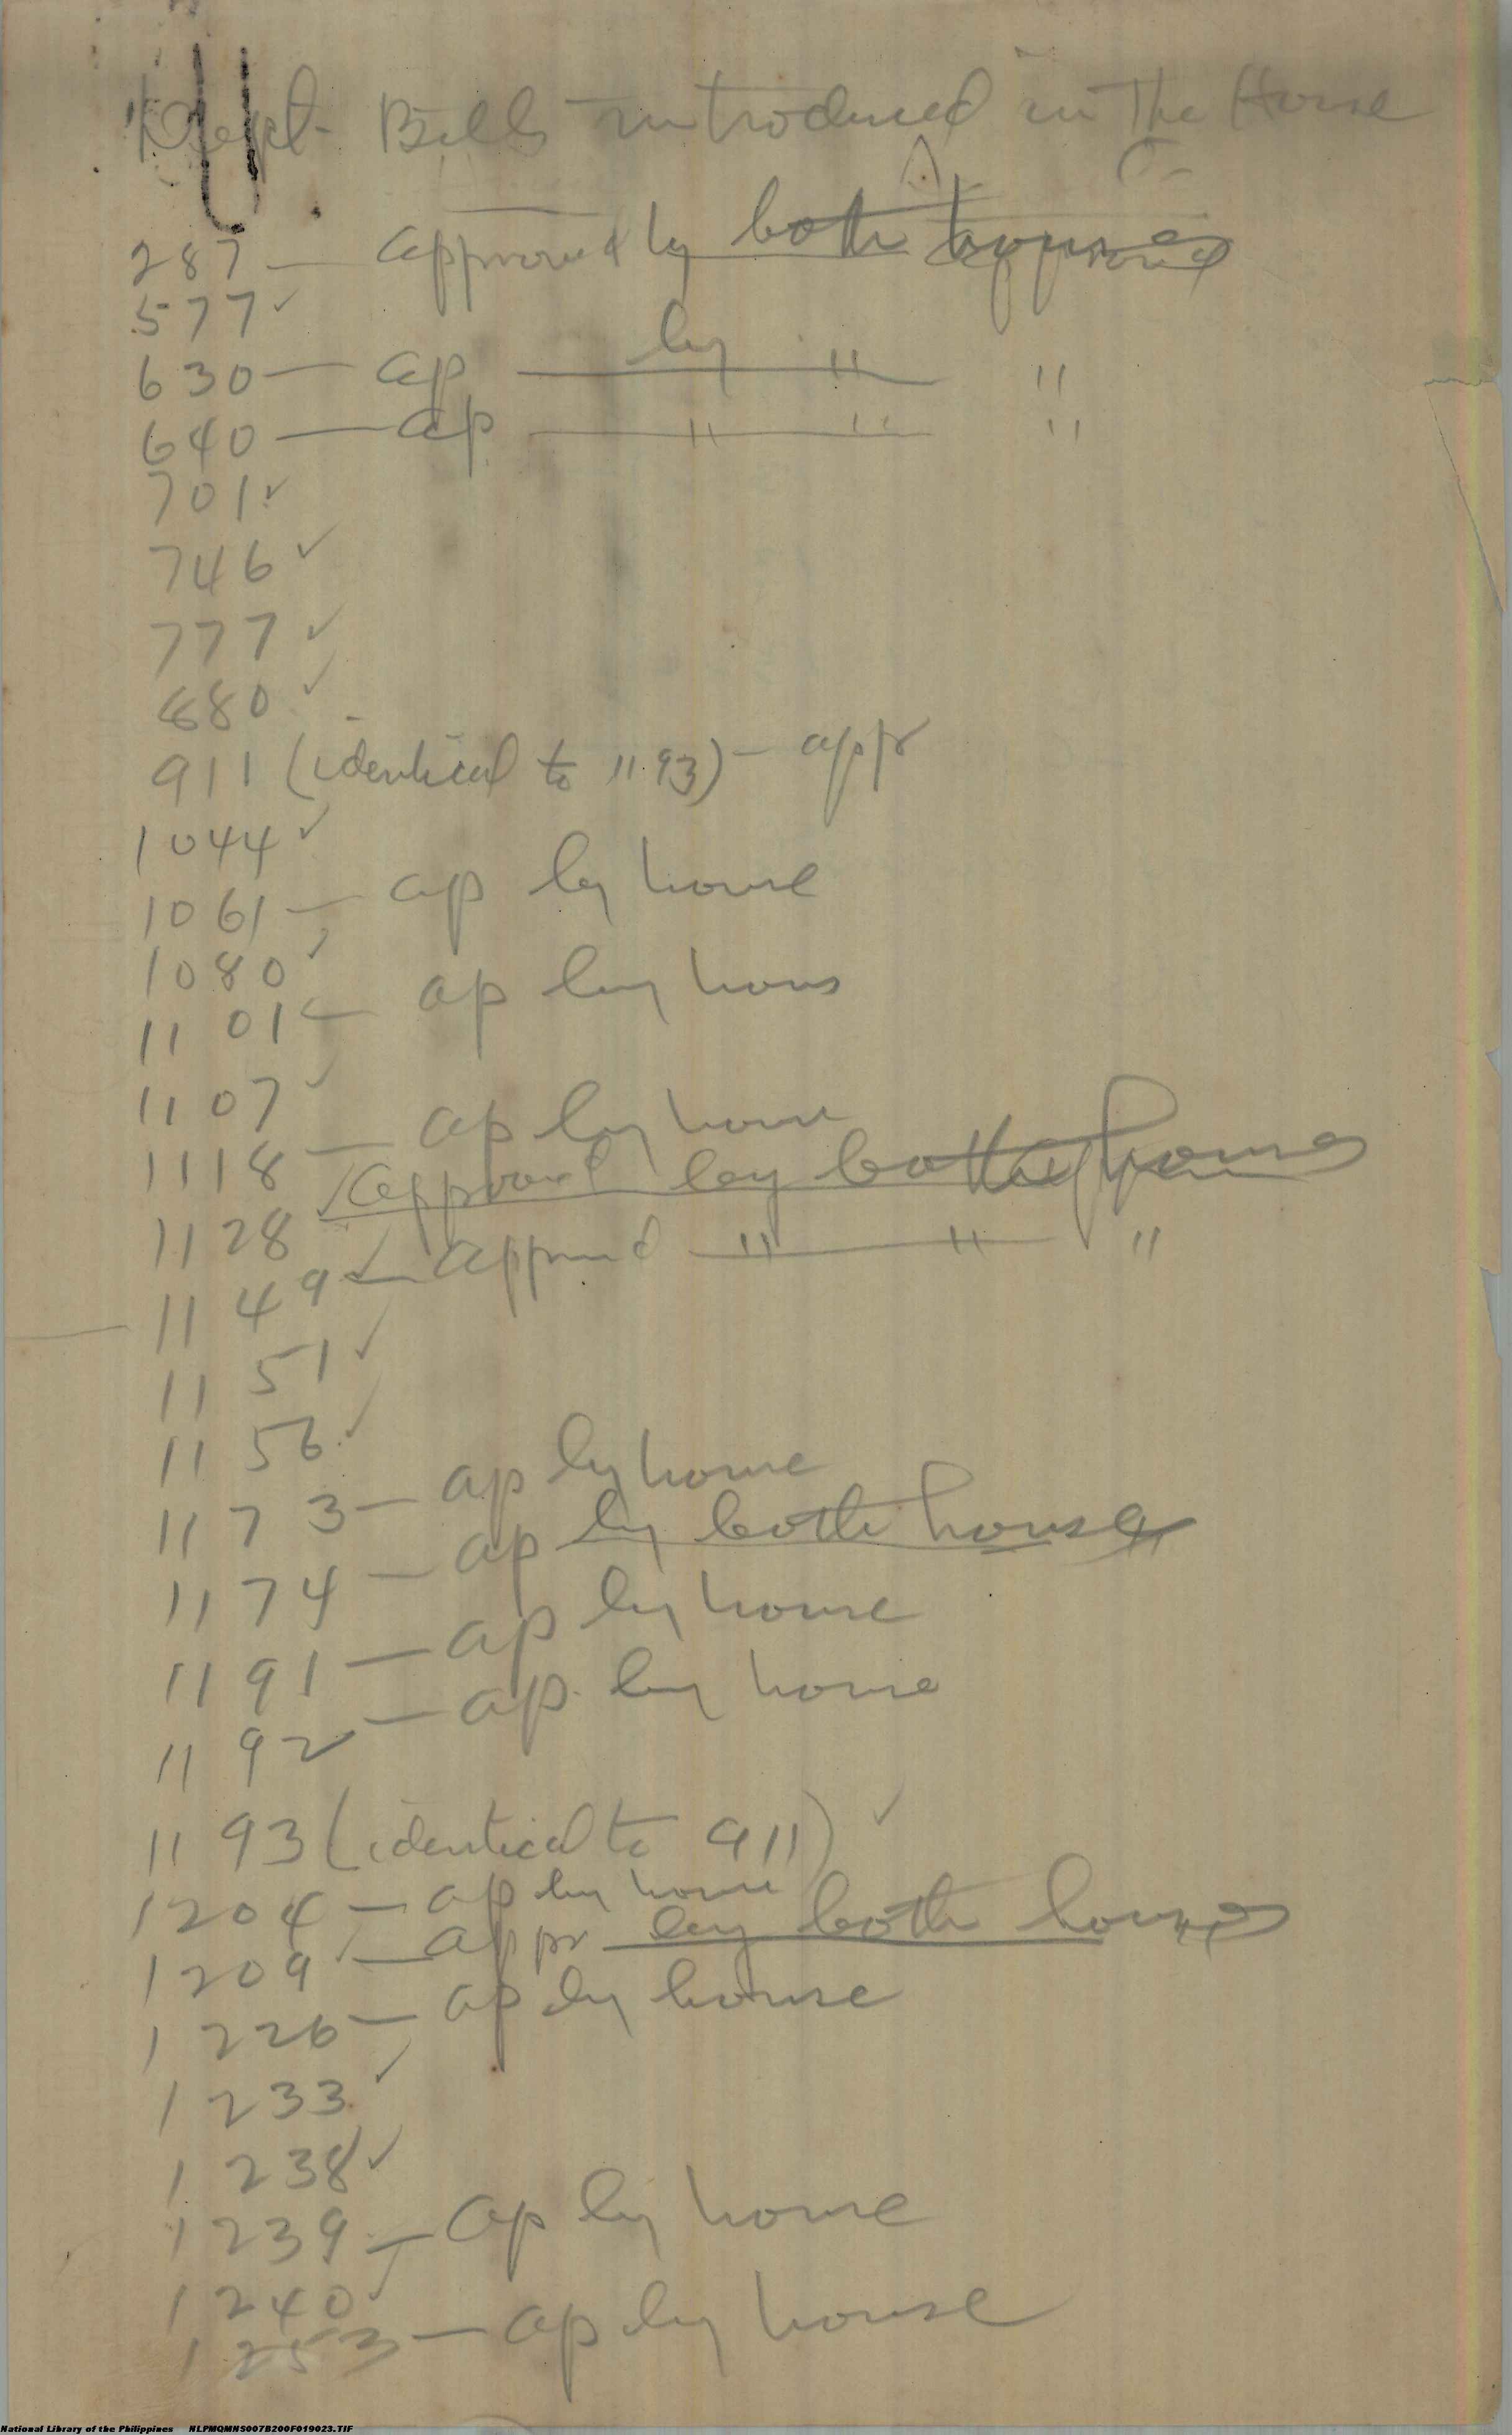 Dept. Bills introduced in The House
287 — approved by both houses
577 ✓
630 — ap — by " "
640 — ap — " " "
701 ✓
746 ✓
777 ✓
880 ✓
911 (identical to 1193) — appr
1044 ✓
1061 — ap by house
1080 ✓
1101 — ap by hous
1107 ✓
1118 — ap by house
1128 Approved by both houses
1149 — approved " " "
1151 ✓
1156 ✓
1173 — ap by house
1174 — ap by both houses
1191 — ap by house
1192 — ap. by house
1193 (identical to 911) ✓
1204 — ap by house
1209 — appr by both houses
1226 — ap by house
1233 ✓
1238 ✓
1239 — ap by house
1240 ✓
1253 — ap by house
National Library of the Philippines NLPMQMNS007B200F019023.TIF